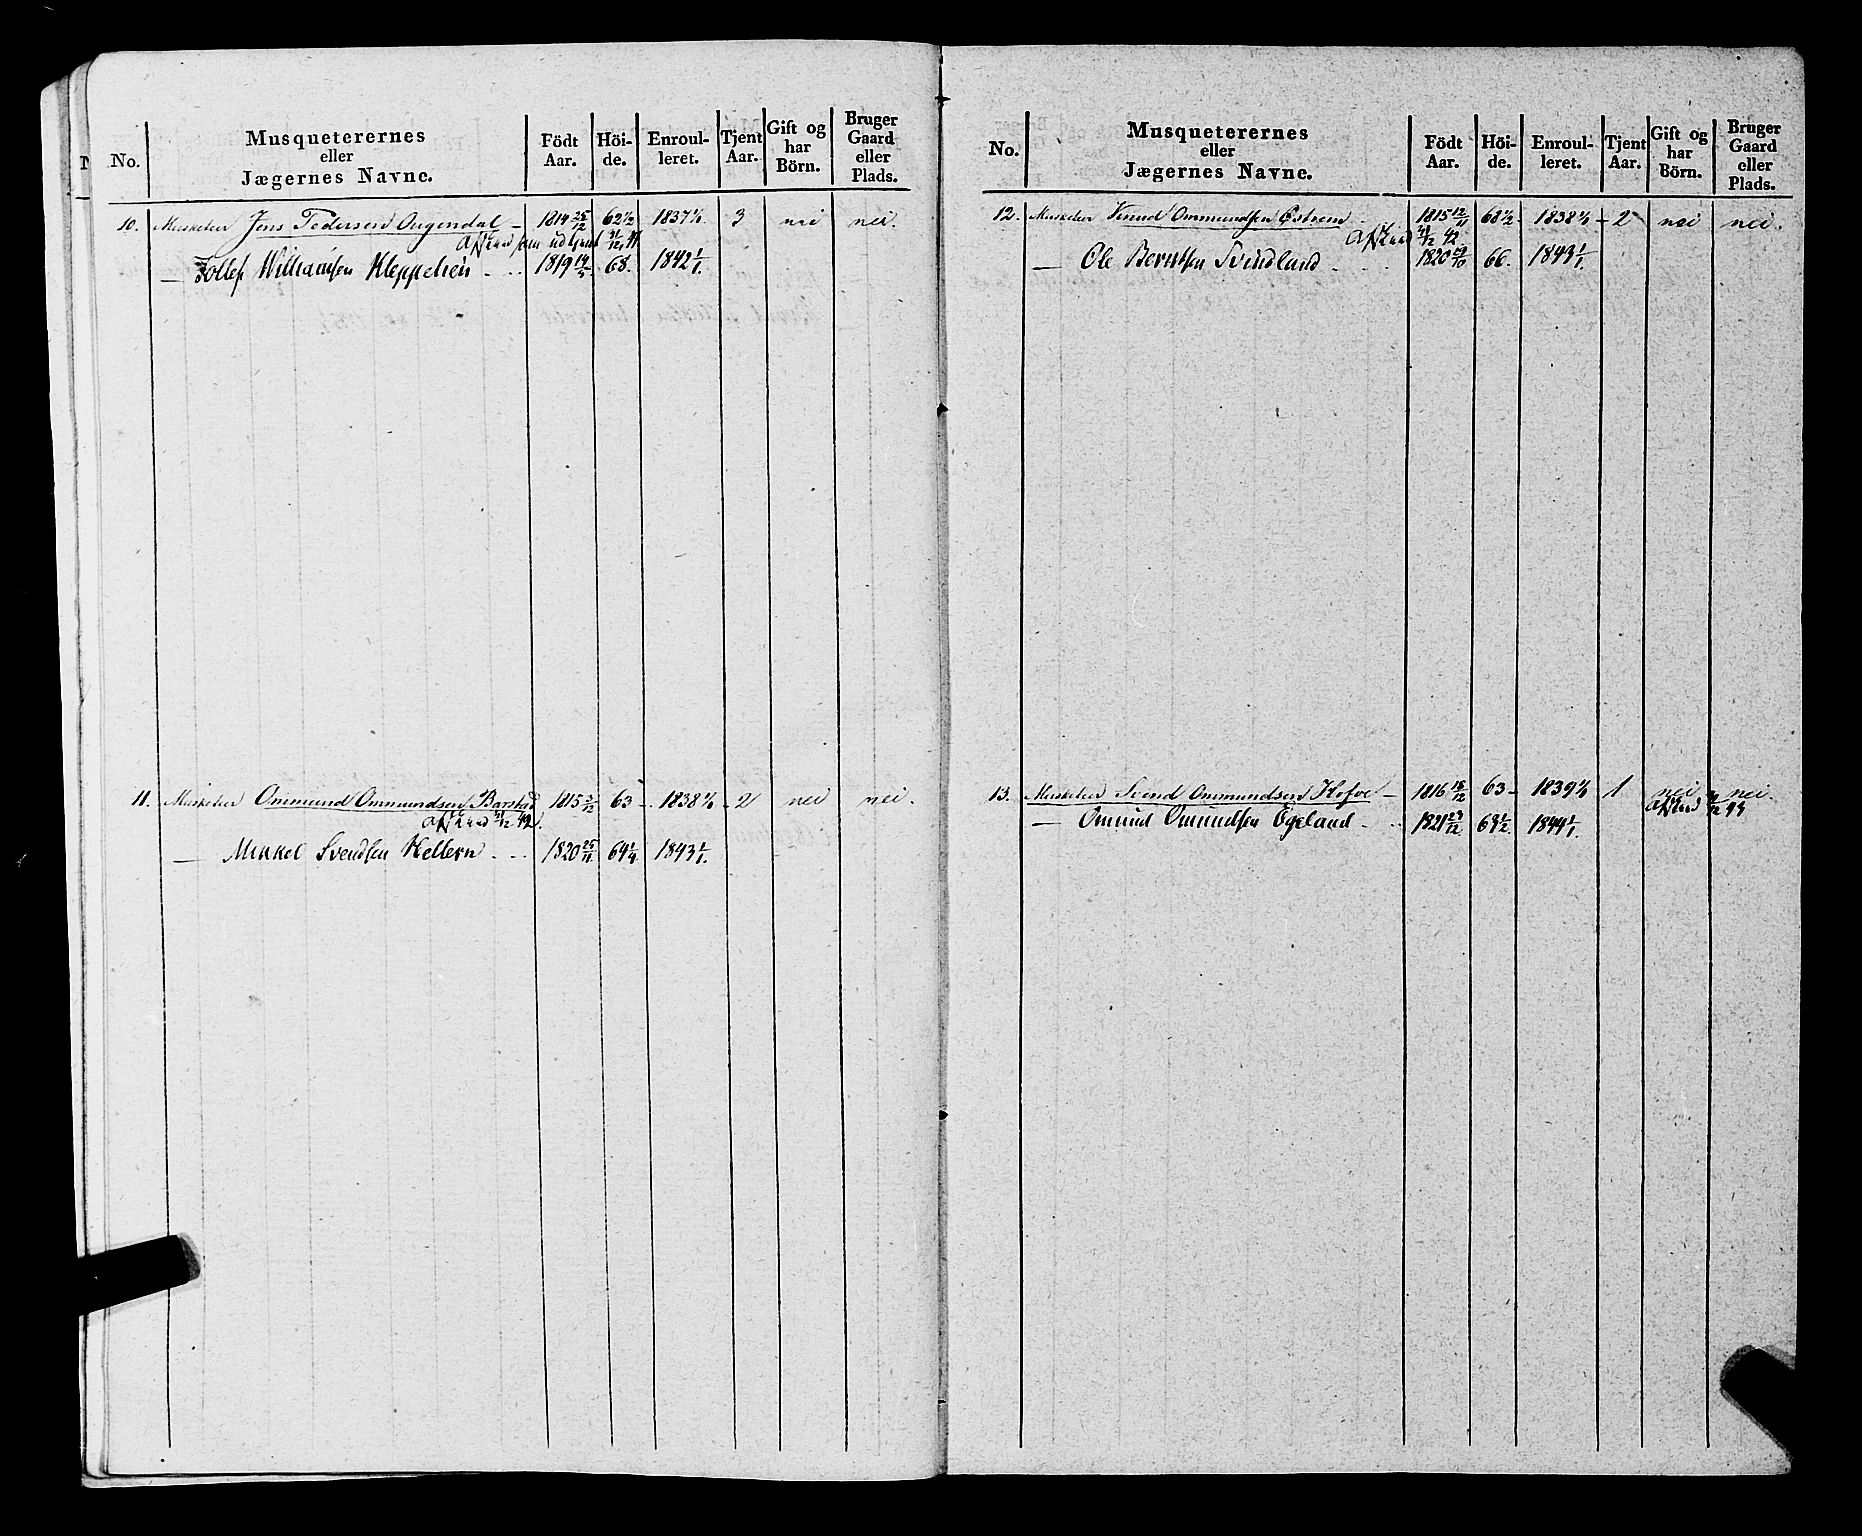 No. Musqueterernes eller Jægernes Navne. Födt Aar. Höide. Enroulleret. Tjent Aar. Gift og har Börn. Bruger Gaard eller Plads.
10. Musketeer Jens Pedersen Augendal – 1814 25/12 62 1/2 1837 1/1 3 nei nei.
Afskeed som udtjent 31/12 41
— Tollef Williamsen Kleppelien . . . 1819 14/5 68. 1842 1/1.
11. Musketeer Ommund Ommundsen Barstad 1815 3/12 63 – 1838 1/1 – 2 nei nei.
Afskeed 31/12 42.
— Mikkel Svendsen Hellern . . . 1820 25/11 64 1/4 1843 1/1.
No. Musqueterernes eller Jægernes Navne. Födt Aar. Höide. Enroulleret. Tjent Aar. Gift og har Börn. Bruger Gaard eller Plads.
12. Musketeer Knud Ommundsen Østrem 1815 12/11 68 1/2 – 1838 1/1 – 2 nei nei.
Afskeed 31/12 42
— Ole Berntsen Svindland . . . 1820 29/10 66. 1843 1/1.
13. Musketeer Svend Ommundsen Hofve – 1816 18/12 63 – 1839 1/1 1 nei nei.
Afskeed 31/12 43
— Omund Omundsen Egeland . . . 1821 29/12 68 1/2 1844 1/1.